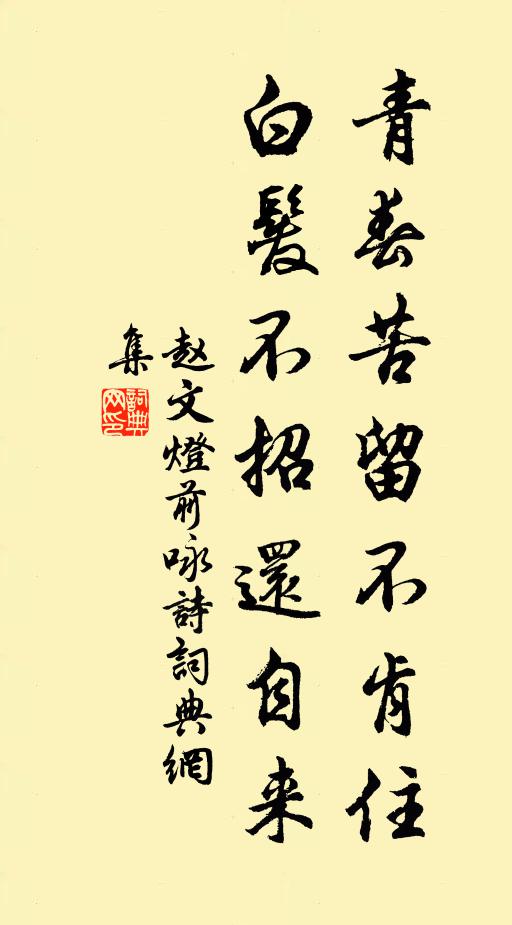 青春苦留不肯住
白髮不招還自来
赵文燈前咏詩詞典網
集
詞典
网印